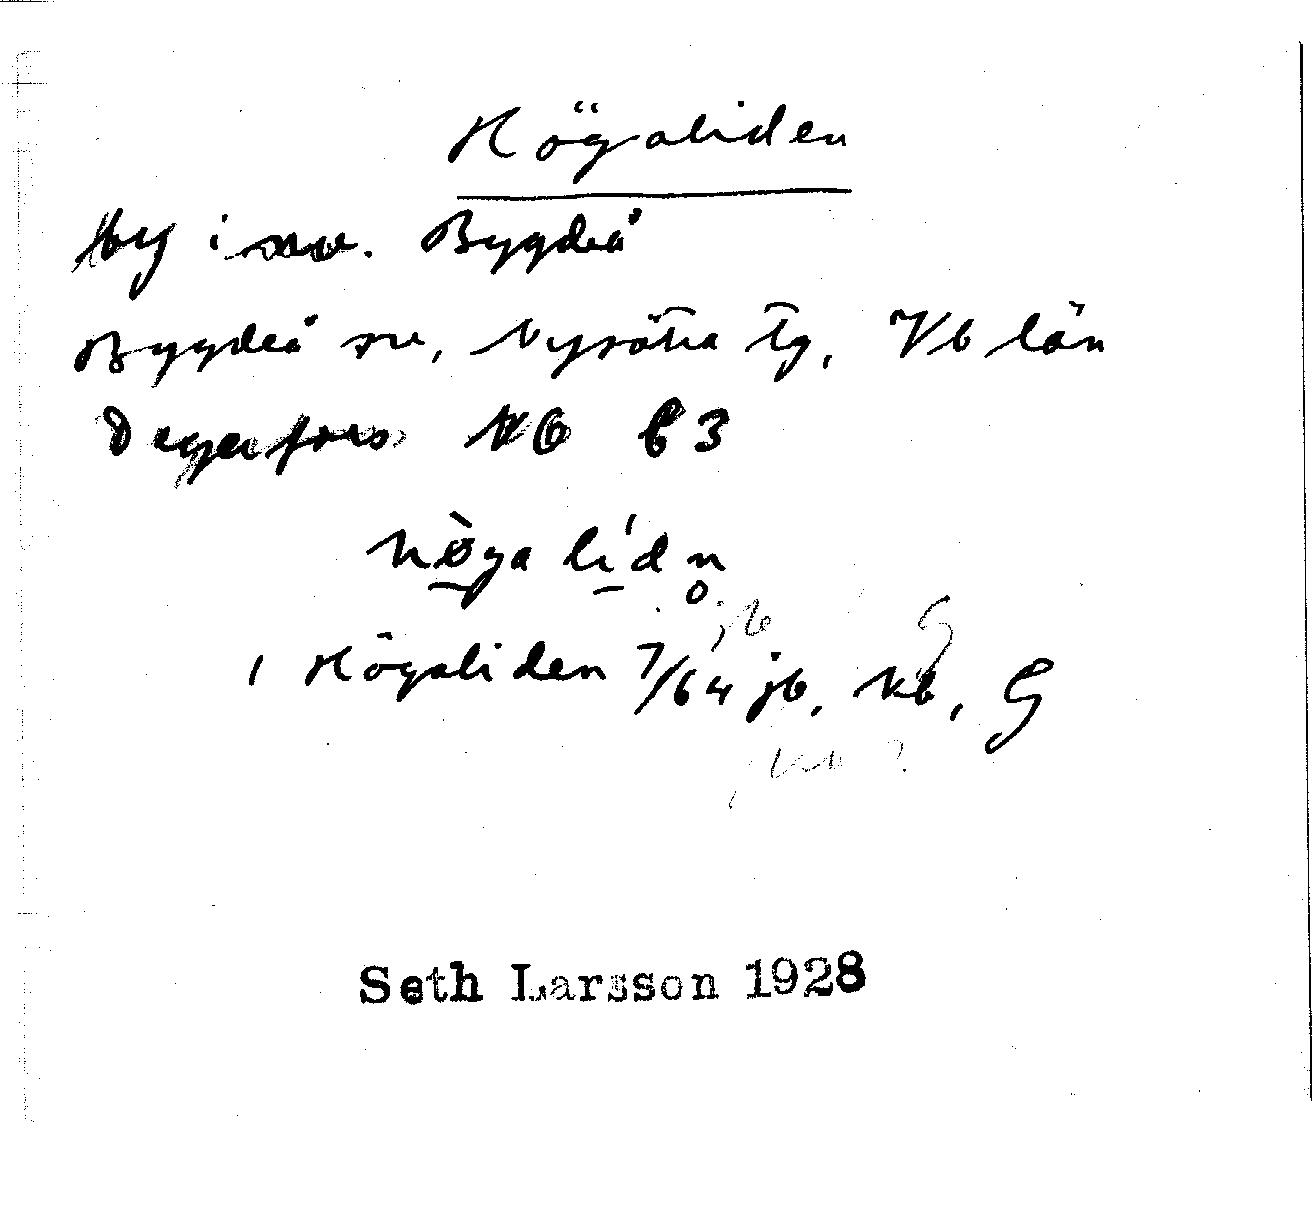 Högaliden
By i sv. Bygdeå
Bygdeå sn, Nysätra tg, Vb län
Degerfors NO C3
höga lidn
jb G
1 Högaliden 7/64 jb, kb, G
Seth Larsson 1928